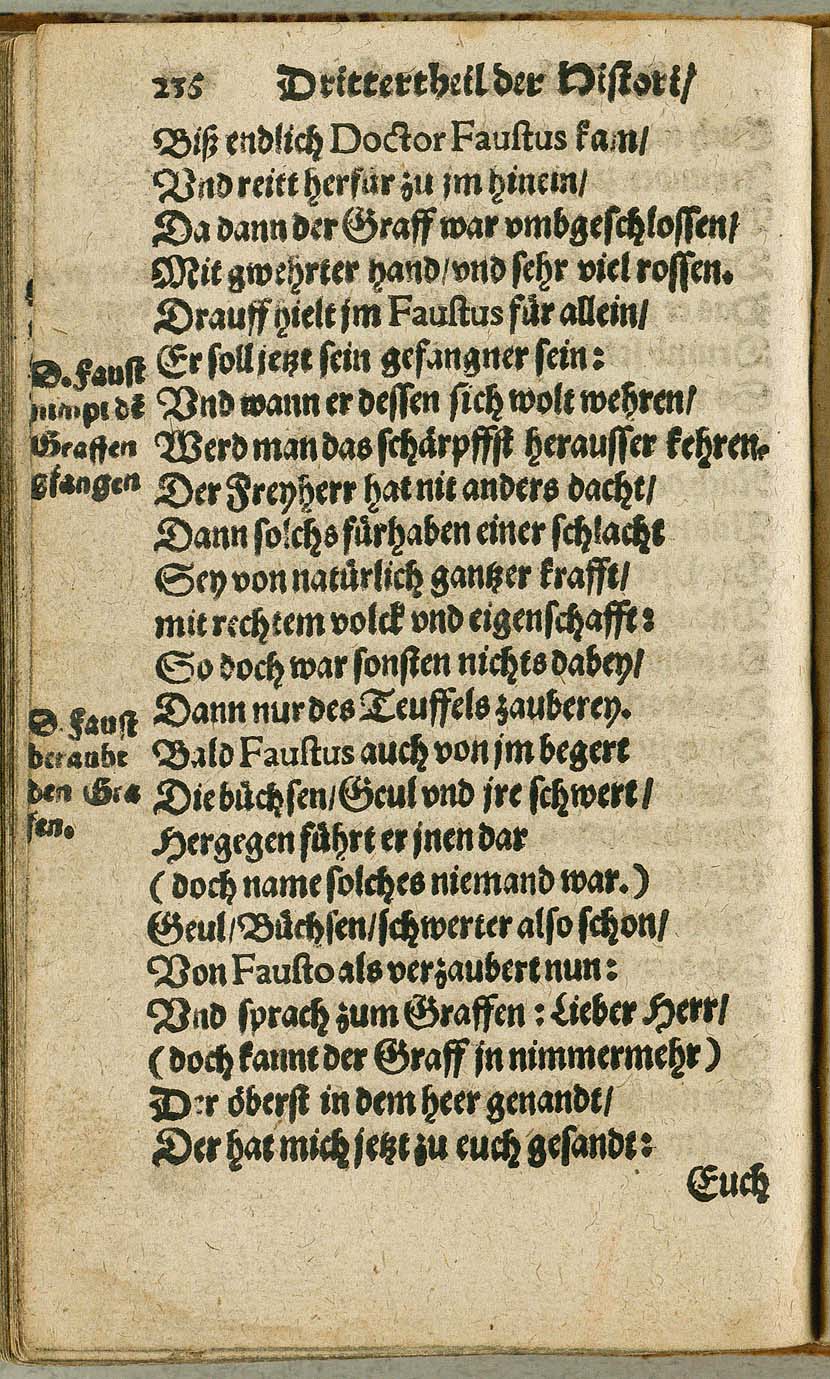 236 Drittertheil der Histori/
Biß endlich Doctor Faustus kam/
Vnd reitt herfür zu jm hinein/
Da dann der Graff war vmbgeschlossen/
Mit gwehrter hand/vnd sehr viel rossen.
Drauff hielt jm Faustus für allein/
D. Faust
nimpt dē
Graffen
gfangen
Er soll jetzt sein gefangner sein:
Vnd wann er dessen sich wolt wehren/
Werd man das schärpffst herausser kehren.
Der Freyherr hat nit anders dacht/
Dann solchs fürhaben einer schlacht
Sey von natürlich gantzer krafft/
mit rechtem volck vnd eigenschafft:
So doch war sonsten nichts dabey/
Dann nur des Teuffels zauberey.
D. Faust
beraubt
den Gra
fen.
Bald Faustus auch von jm begert
Die büchsen/Geul vnd jre schwert/
Hergegen führt er jnen dar
(doch name solches niemand war.)
Geul/Büchsen/schwerter also schon/
Von Fausto als verzaubert nun:
Vnd sprach zum Graffen: Lieber Herr/
(doch kannt der Graff jn nimmermehr)
Der öberst in dem heer genandt/
Der hat mich jetzt zu euch gesandt:
Euch